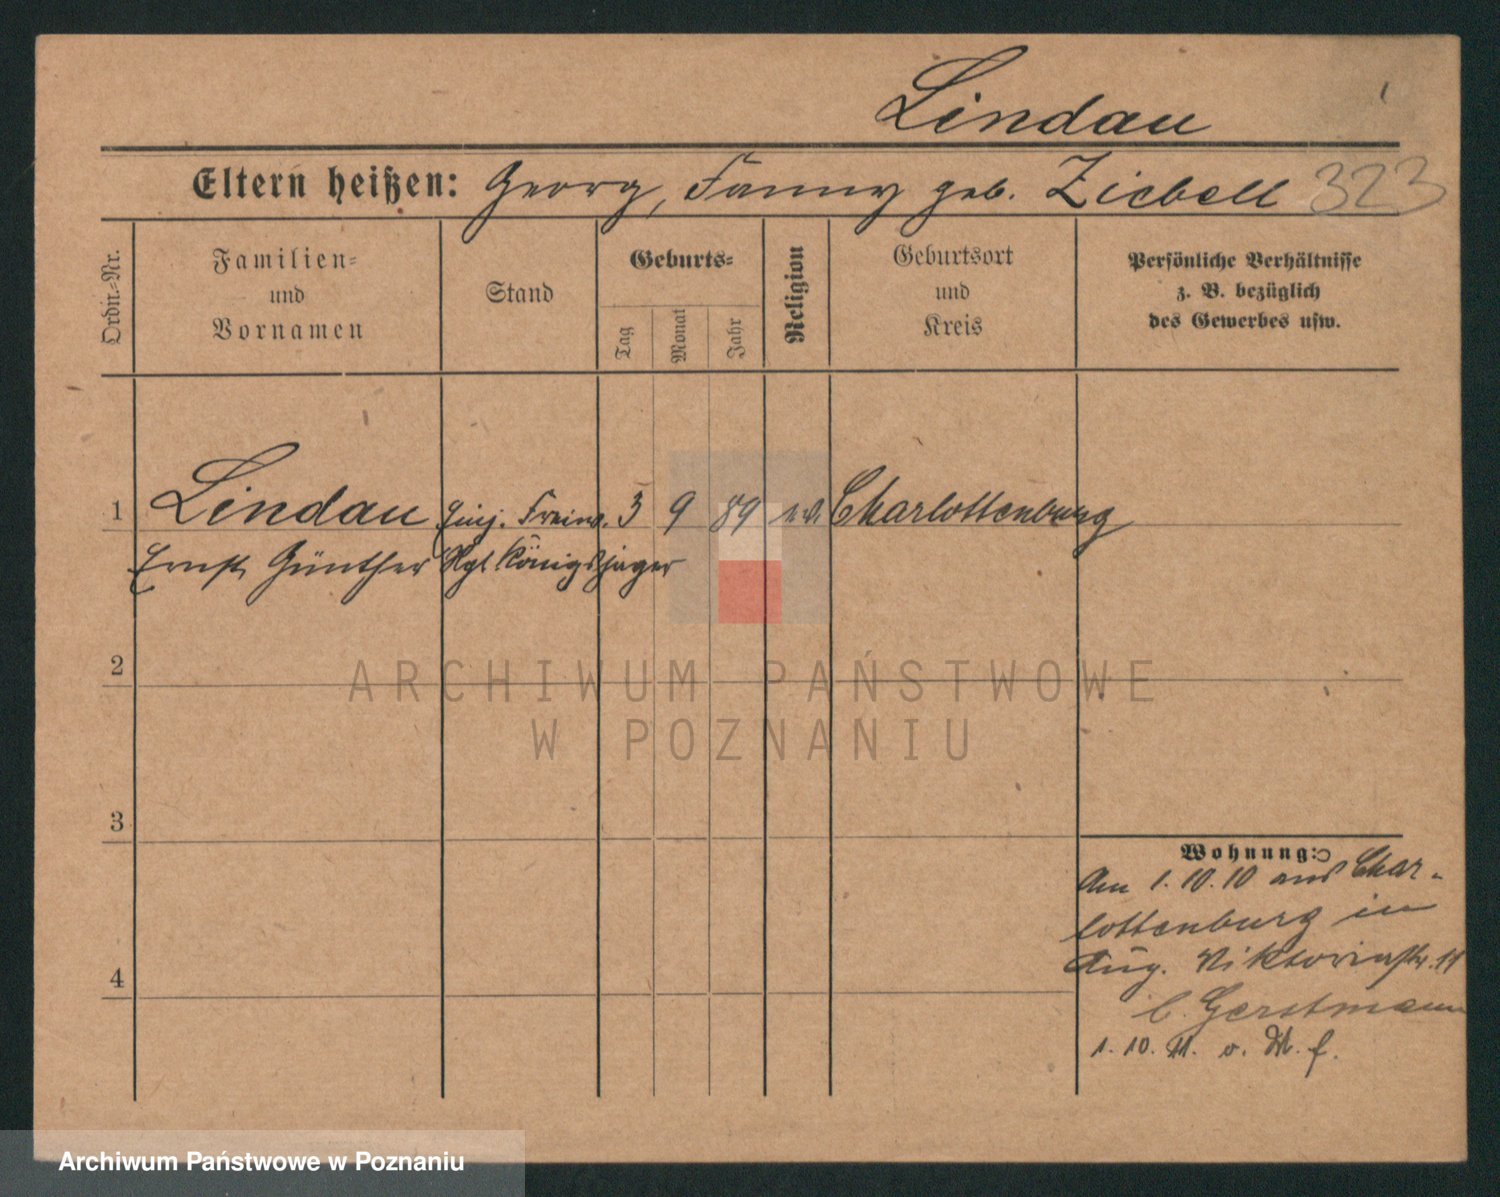 Lindau
Eltern heißen: Georg, Fanny geb. Ziebell 323
Ordn.-Nr.
Familien-
und
Vornamen
Stand
Geburts-
Tag
Monat
Jahr
Religion
Geburtsort
und
Kreis
Persönliche Verhältnisse
z. B. bezüglich
des Gewerbes usw.
1 Lindau Einj. Freiw. 3 9 89 ev. Charlottenburg
Ernst Günther Rgt. Königsjäger
2
3
4
Wohnung:
Am 1.10.10 aus Char-
lottenburg in
Aug. Viktoriastr. 11
b. Gerstmann
1. 10. 11. v. M. f.
ARCHIWUM PAŃSTWOWE
W POZNANIU
Archiwum Państwowe w Poznaniu